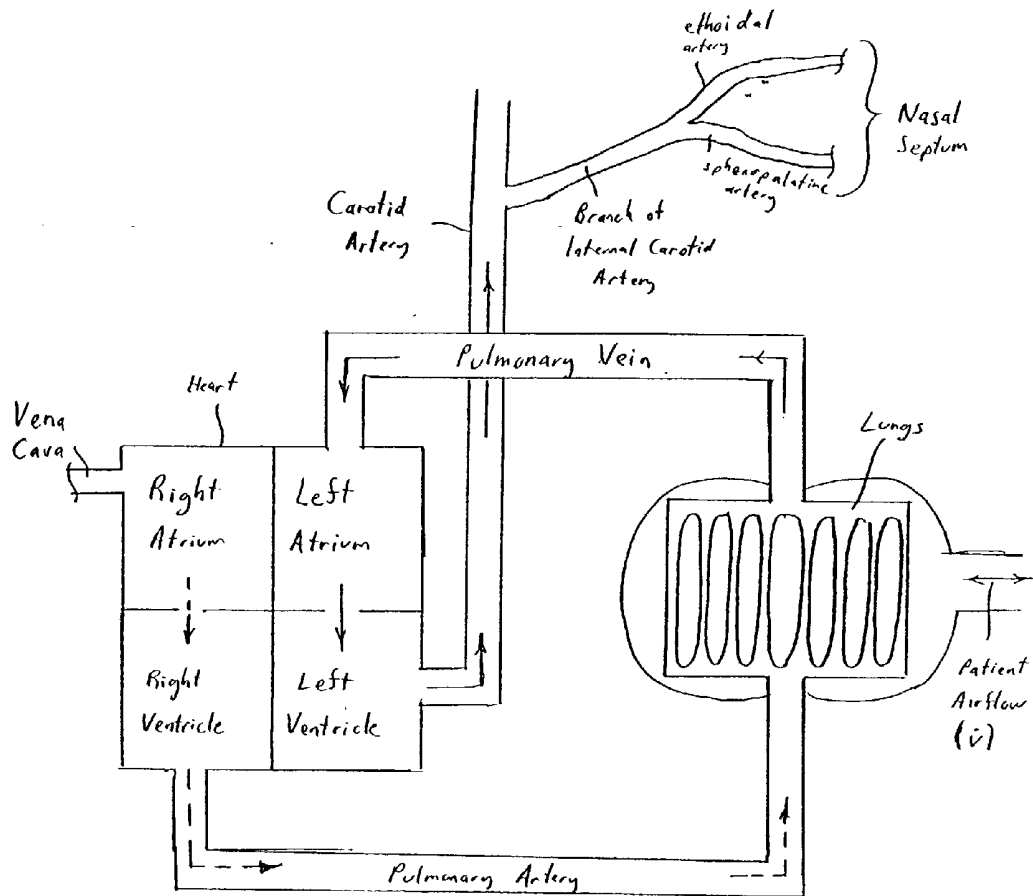 ethoidal
artery
Nasal
Septum
sphenopalatine
artery
Carotid
Artery
Branch of
Internal Carotid
Artery
Pulmonary Vein
Heart
Vena
Cava
Lungs
Right
Atrium
Left
Atrium
Right
Ventricle
Left
Ventricle
Patient
Airflow
(v̇)
Pulmonary Artery